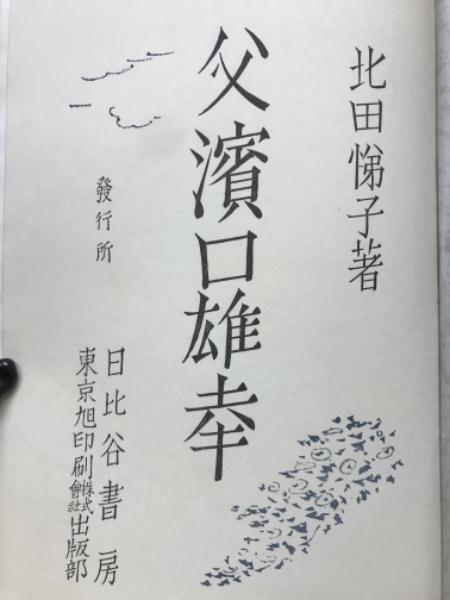 北田悌子著
父濱口雄幸
發行所
日比谷書房
東京旭印刷株式會社出版部